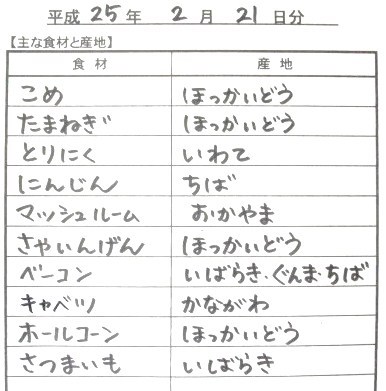 平成 25 年 2 月 21 日分
【主な食材と産地】
食材 産地
こめ ほっかいどう
たまねぎ ほっかいどう
とりにく いわて
にんじん ちば
マッシュルーム おかやま
さやいんげん ほっかいどう
ベーコン いばらき・ぐんま・ちば
キャベツ かながわ
ホールコーン ほっかいどう
さつまいも いばらき